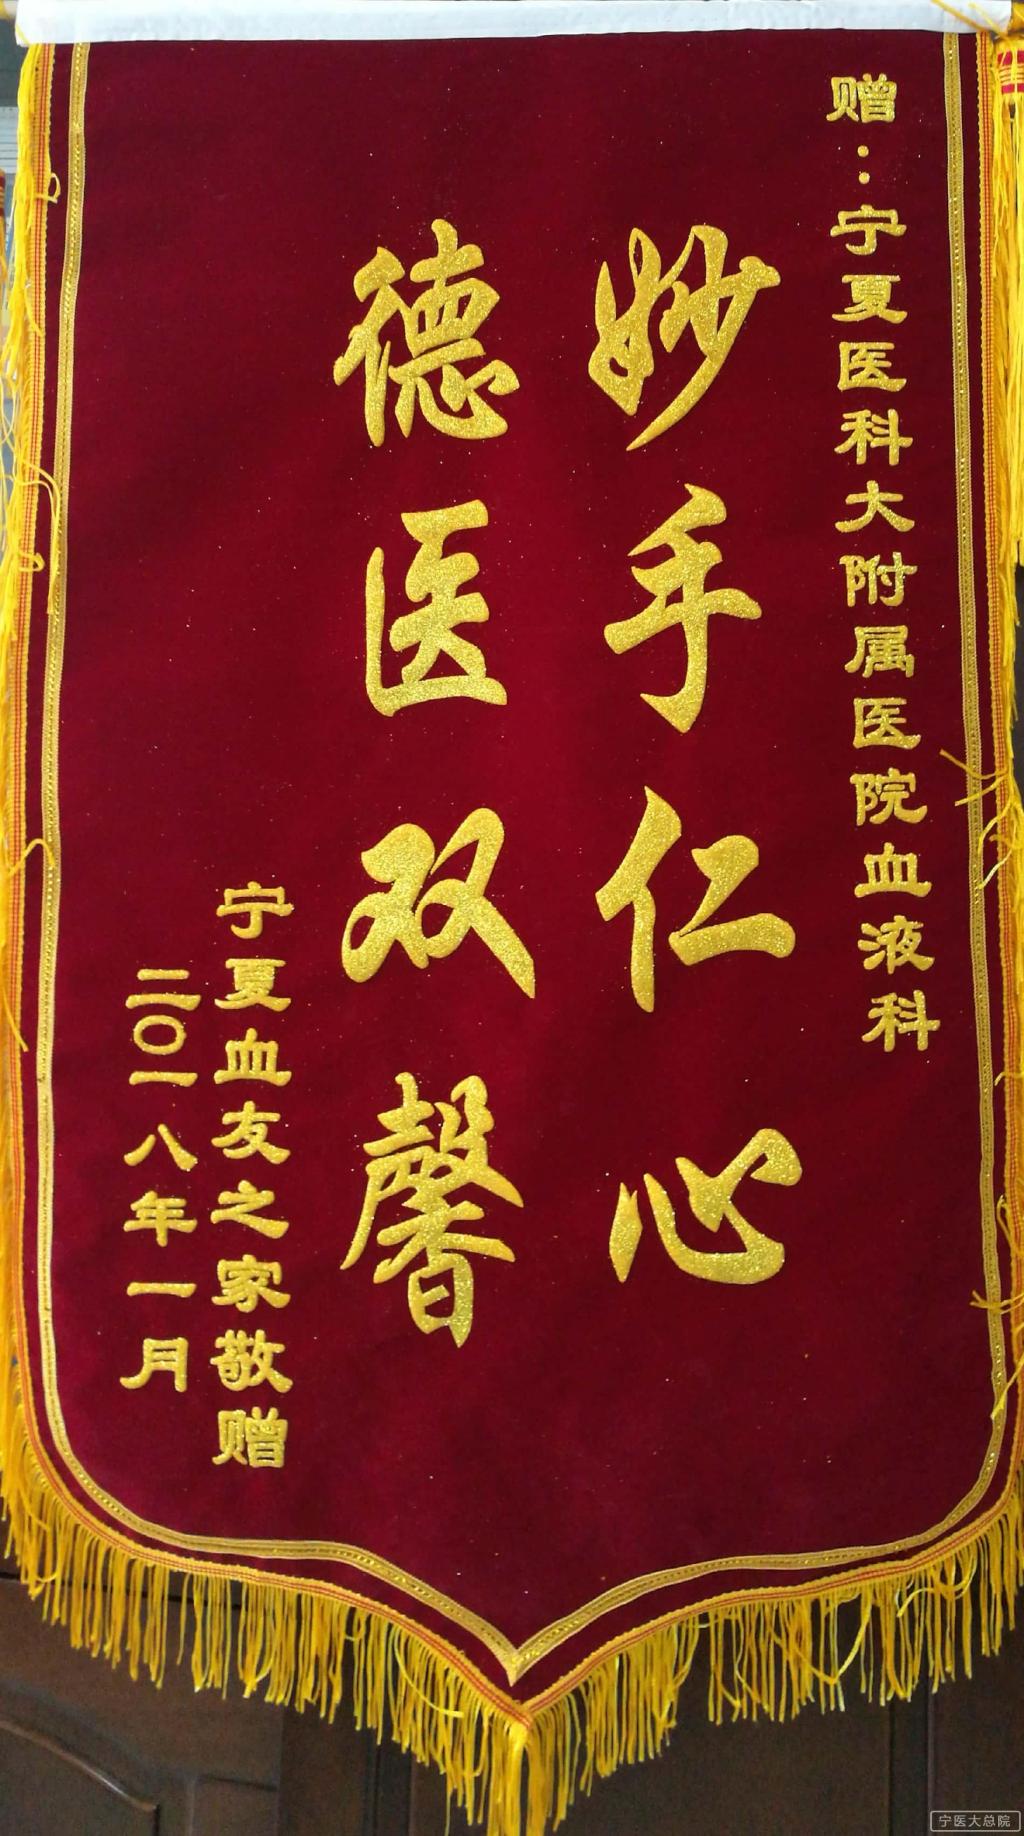 赠：宁夏医科大附属医院血液科
妙手仁心
德医双馨
宁夏血友之家敬赠
二〇一八年一月
宁医大总院